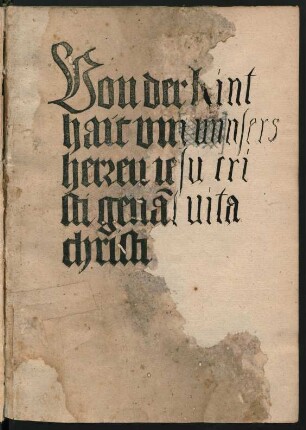 Von der kint
hait vnñ vnnsers
herren ie su cri
sti genāt uita
christi